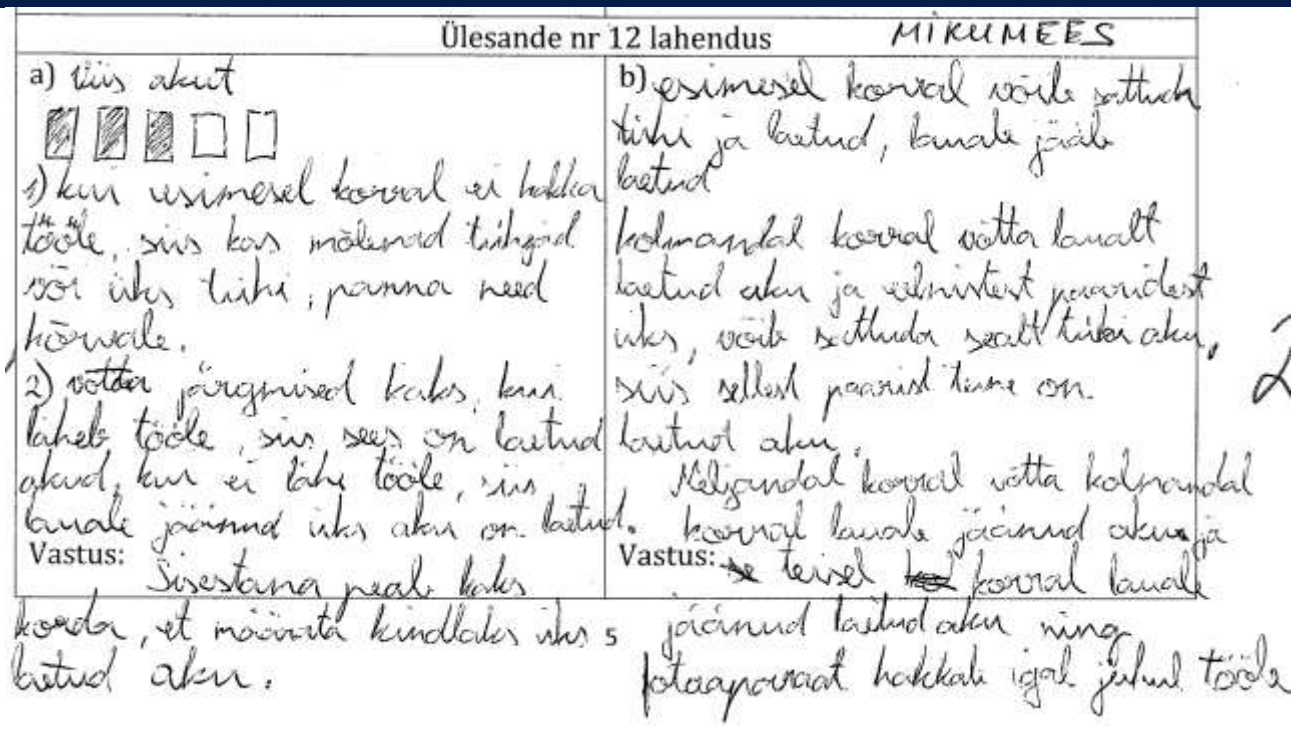 Ülesande nr 12 lahendus MIKUMEES
a) Viis akut
1) kui esimesel korral ei hakka
tööle, siis kas mõlemad tühjad
või üks tühi, panna need
kõrvale.
2) võtta järgmised kaks, kui
läheb tööle, siis sees on laetud
akud, kui ei lähe tööle, siis
lauale jäänud üks aku on laetud.
Vastus:
Sisestana peab kaks
korda, et määrata kindlaks üks
laetud aku.
b) esimesel korral võib sattuda
tühi ja laetud, lauale jääb
laetud
kolmandal korral võtta laualt
laetud aku ja eelmistest paaridest
üks, võib sattuda sealt tühi aku,
siis sellest paarist teine on
laetud aku.
Neljandal korral võtta kolmandal
korral lauale jäänud aku ja
Vastus: teisel korral lauale
jäänud laetud aku ning
fotoaparaat hakkab igal juhul tööle
5
2